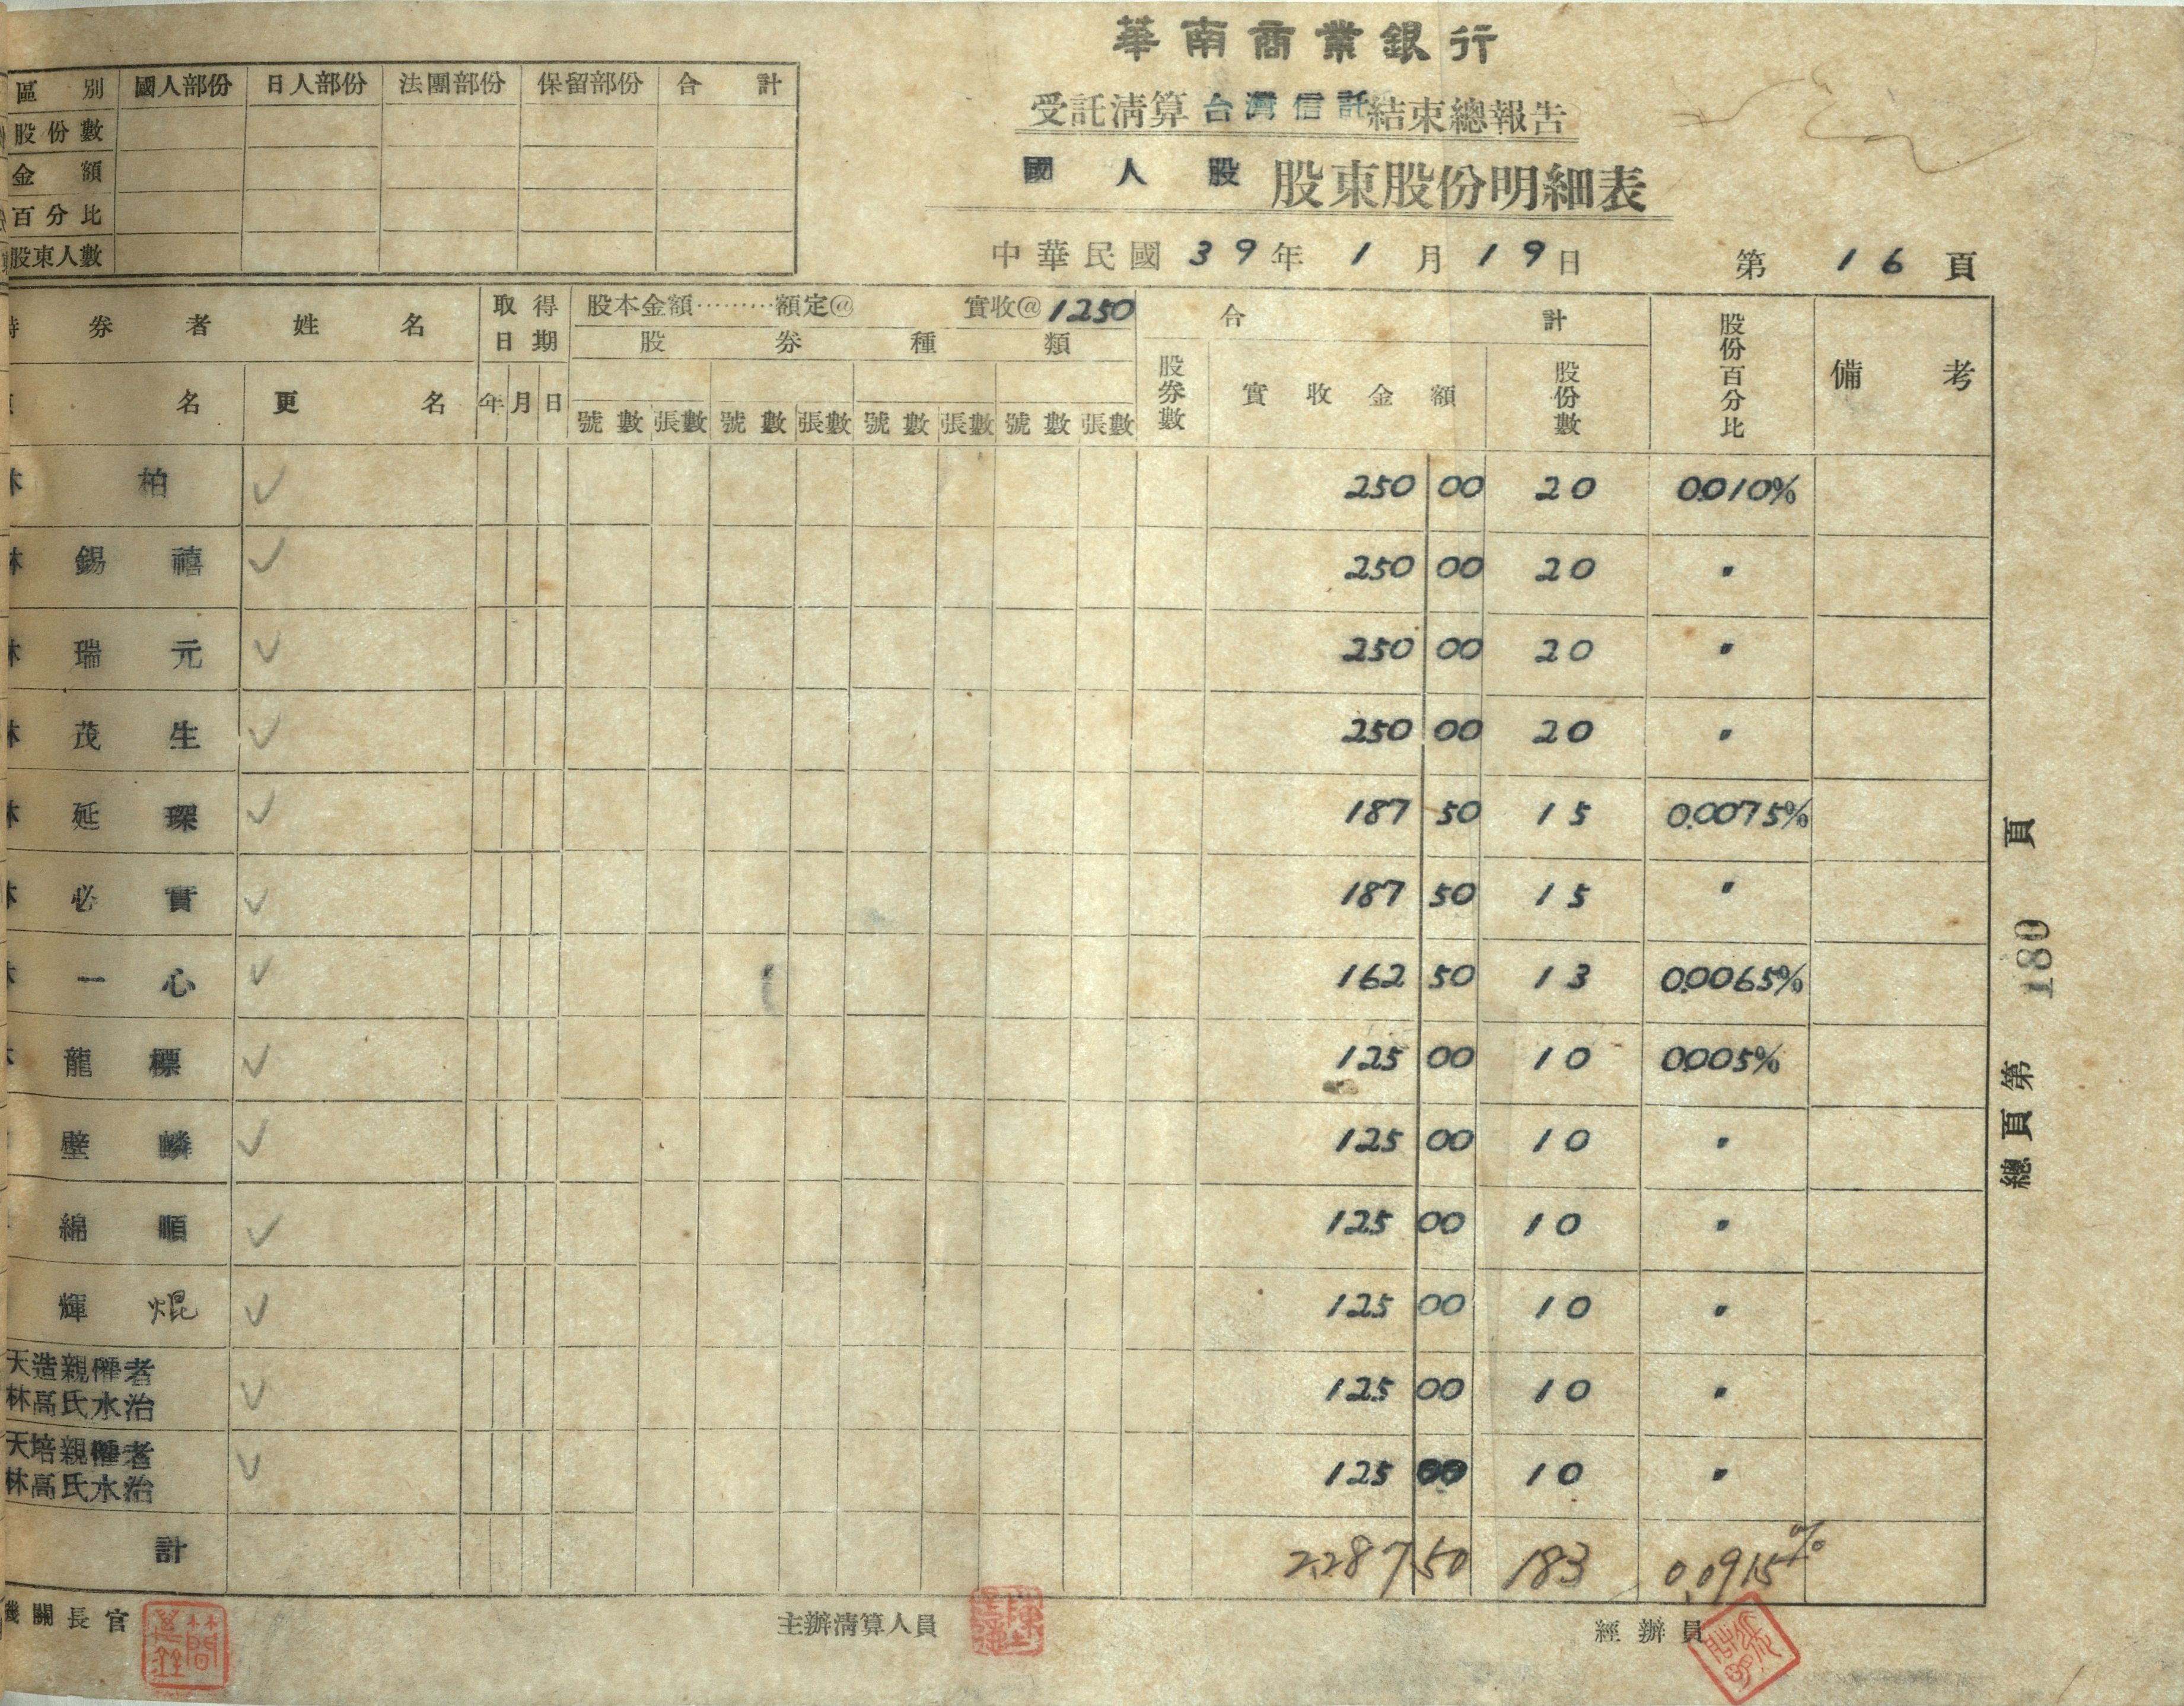 華南商業銀行
受託清算台灣信託結束總報告
國人股股東股份明細表
中華民國39年1月19日 第16頁
區別 國人部份 日人部份 法團部份 保留部份 合計
股份數
金額
百分比
股東人數
券者姓名 取得日期 股本金額………額定@ 實收@1250 合計 股份百分比 備考
股券種類
名 更名 年 月 日 號數 張數 號數 張數 號數 張數 號數 張數 股券數 實收金額 股份數
林柏 ✓ 250 00 20 0.010%
林錫禧 ✓ 250 00 20 〃
林瑞元 ✓ 250 00 20 〃
林茂生 ✓ 250 00 20 〃
林延琛 ✓ 187 50 15 0.0075%
林必實 ✓ 187 50 15 〃
林一心 ✓ 162 50 13 0.0065%
龍標 ✓ 125 00 10 0.005%
壁麟 ✓ 125 00 10 〃
綿順 ✓ 125 00 10 〃
輝焜 ✓ 125 00 10 〃
天造親權者
林高氏水治 ✓ 125 00 10 〃
天培親權者
林高氏水治 ✓ 125 00 10 〃
計 2,287 50 183 0.0915%
機關長官 主辦清算人員 經辦員
總頁第 180 頁